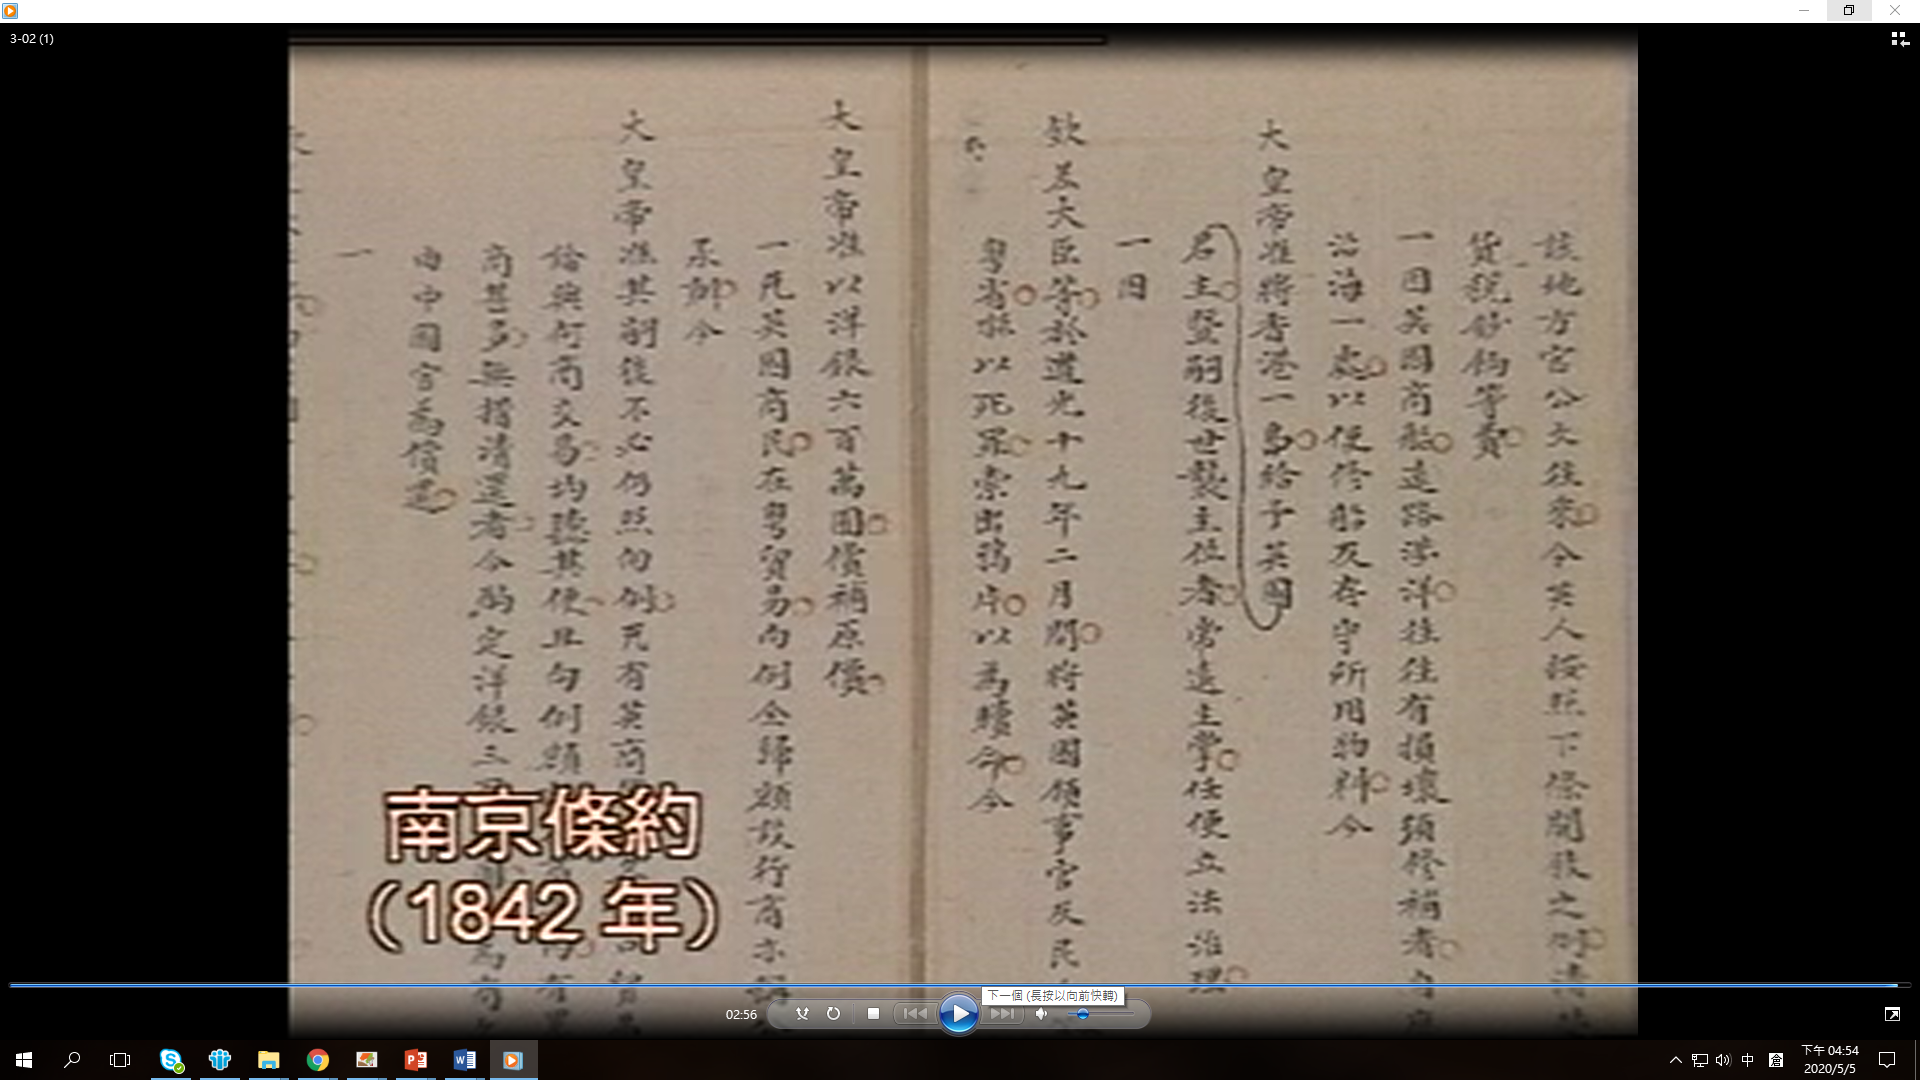 3-02 (1)
該地方官公文往來令英人按照下條開敘之例清
貨稅鈔餉等費
一因英國商船遠路涉洋往往有損壞須修補者自應
沿海一處以便修船及存守所用物料今
大皇帝准將香港一島給予英國
君主暨嗣後世襲主位者常遠主掌任便立法治理
一因
欽差大臣等於道光十九年二月間將英國領事官及民
粵省強以死罪索出鴉片以為贖命今
大皇帝准以洋銀六百萬圓償補原價
一凡英國商民在粵貿易向例全歸額設行商亦稱
承辦今
大皇帝准其嗣後不必仍照向例凡有英商
給與何商交易均聽其便且向例額
商甚多無措清還者今酌定洋銀三
由中國官為償還
一
南京條約
（1842 年）
下一個 (長按以向前快轉)
02:56
中
倉
下午 04:54
2020/5/5